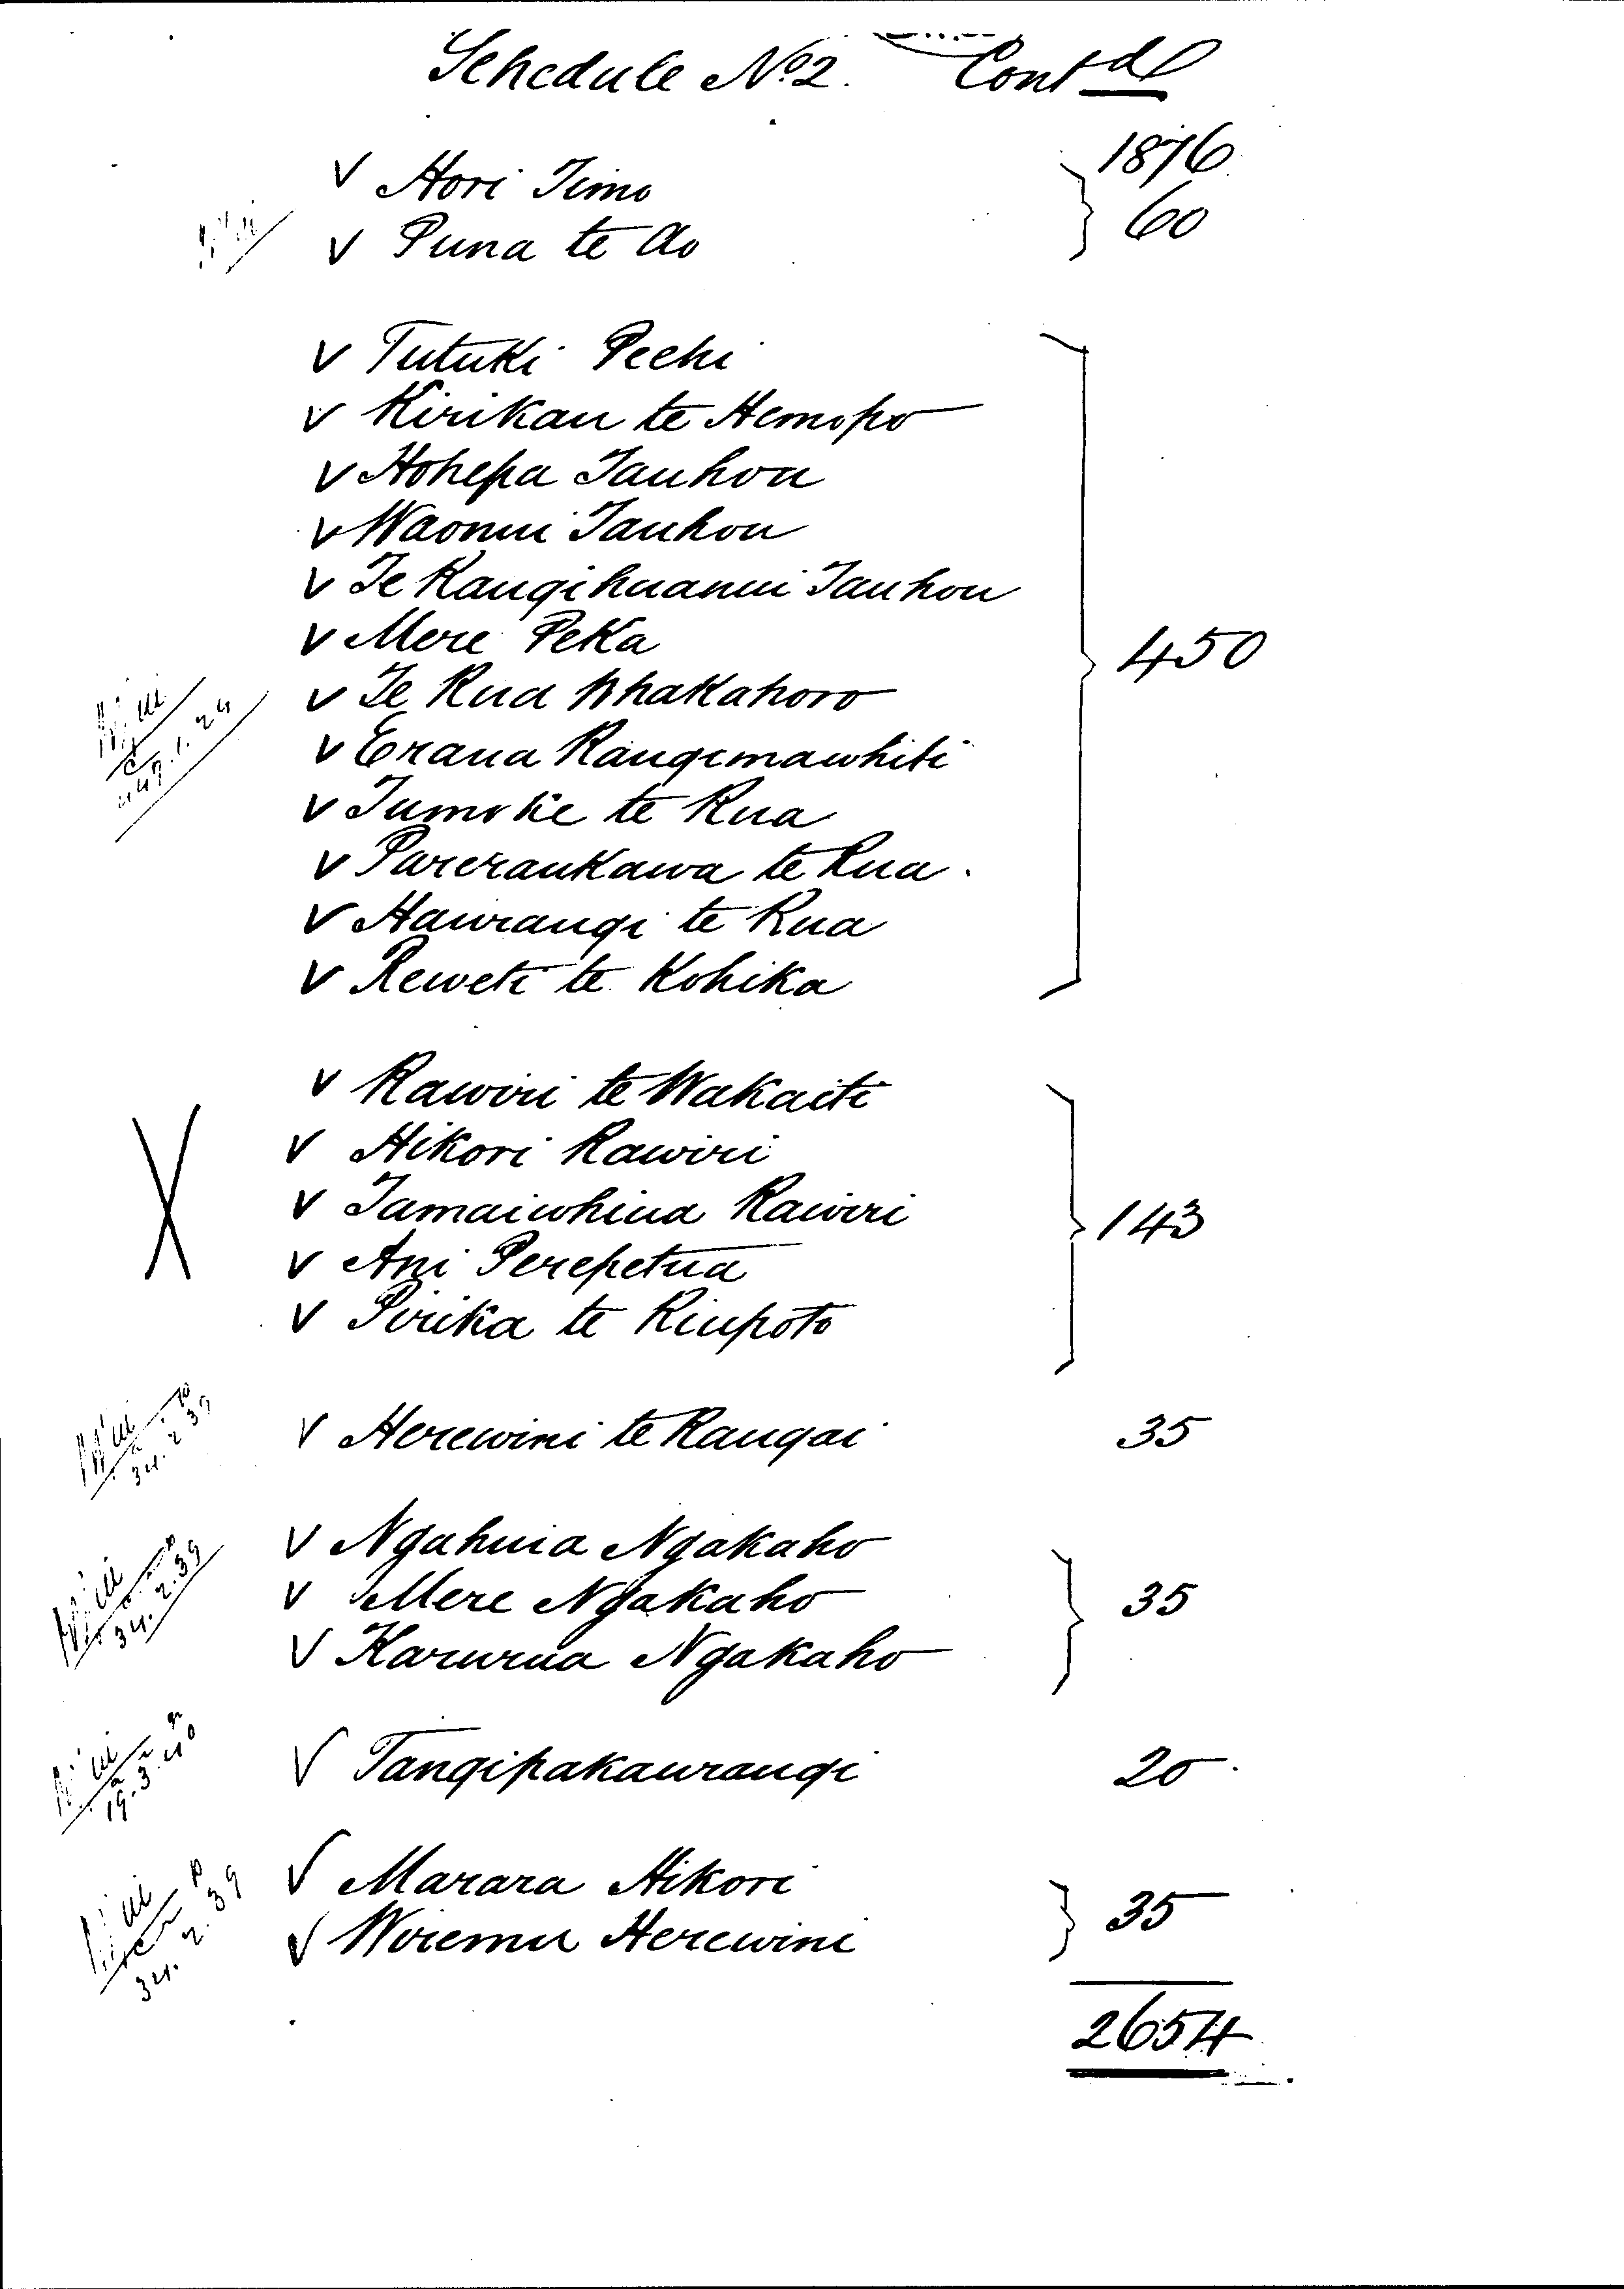 Schedule No 2. Contd
1876
V Hori Timo
60
V Puna te Ao
V Tutuki Pechi
V Kirikau te Hemopo
V Hohepa Tauhou
V Waonui Tauhou
V Te Rangihuanui Tauhou
V Mere Peka
450
V Te Rua Whakahoro
V Erana Rangimawhiti
V Tumoke te Rua
V Pareraukawa te Rua.
V Haurangi te Rua
V Reweti te Kohika
V Rawiri te Wakaiti
X
V Hikori Rawiri
V Tamaiwhiua Rawiri
143
V Ani Perepetua
V Pirika te Riupoto
V Herewini te Rangai 35
34. 2 39
V Ngahuia Ngakaho
V Mere Ngakaho 35
34. 2. 39
V Karurua Ngakaho
V Tangipakaurangi 20
19. 3. 40
V Marara Hikori
35
V Wiremu Herewini
34. 2. 39
2654